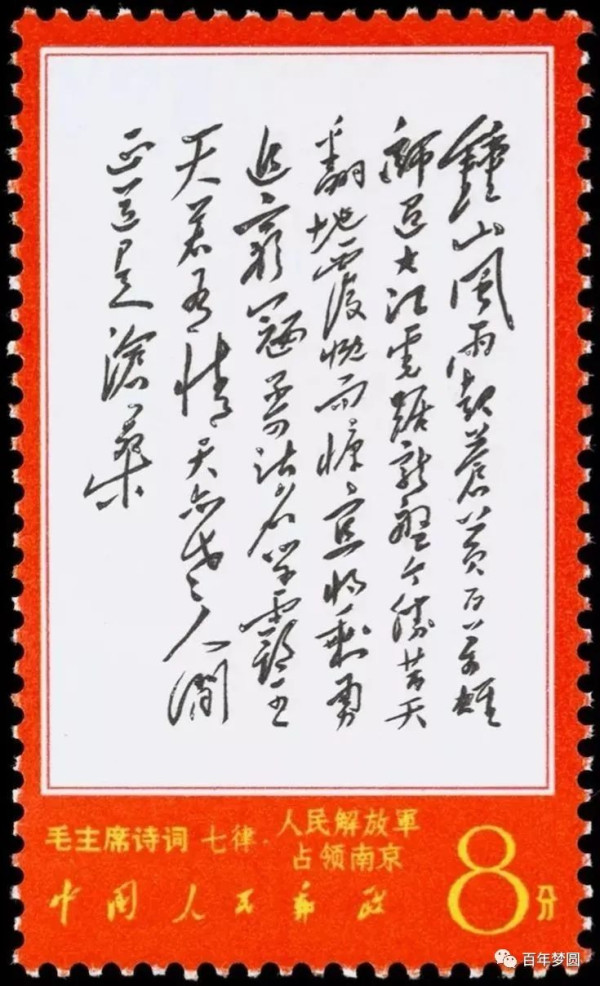 鐘山風雨起蒼黄百萬雄
師過大江虎踞龍盤今勝昔天
翻地覆慨而慷宜將剩勇
追窮寇不可沽名學霸王
天若有情天亦老人間
正道是滄桑
毛主席诗词 七律·人民解放軍
占领南京
中国人民邮政
8分
百年梦圆